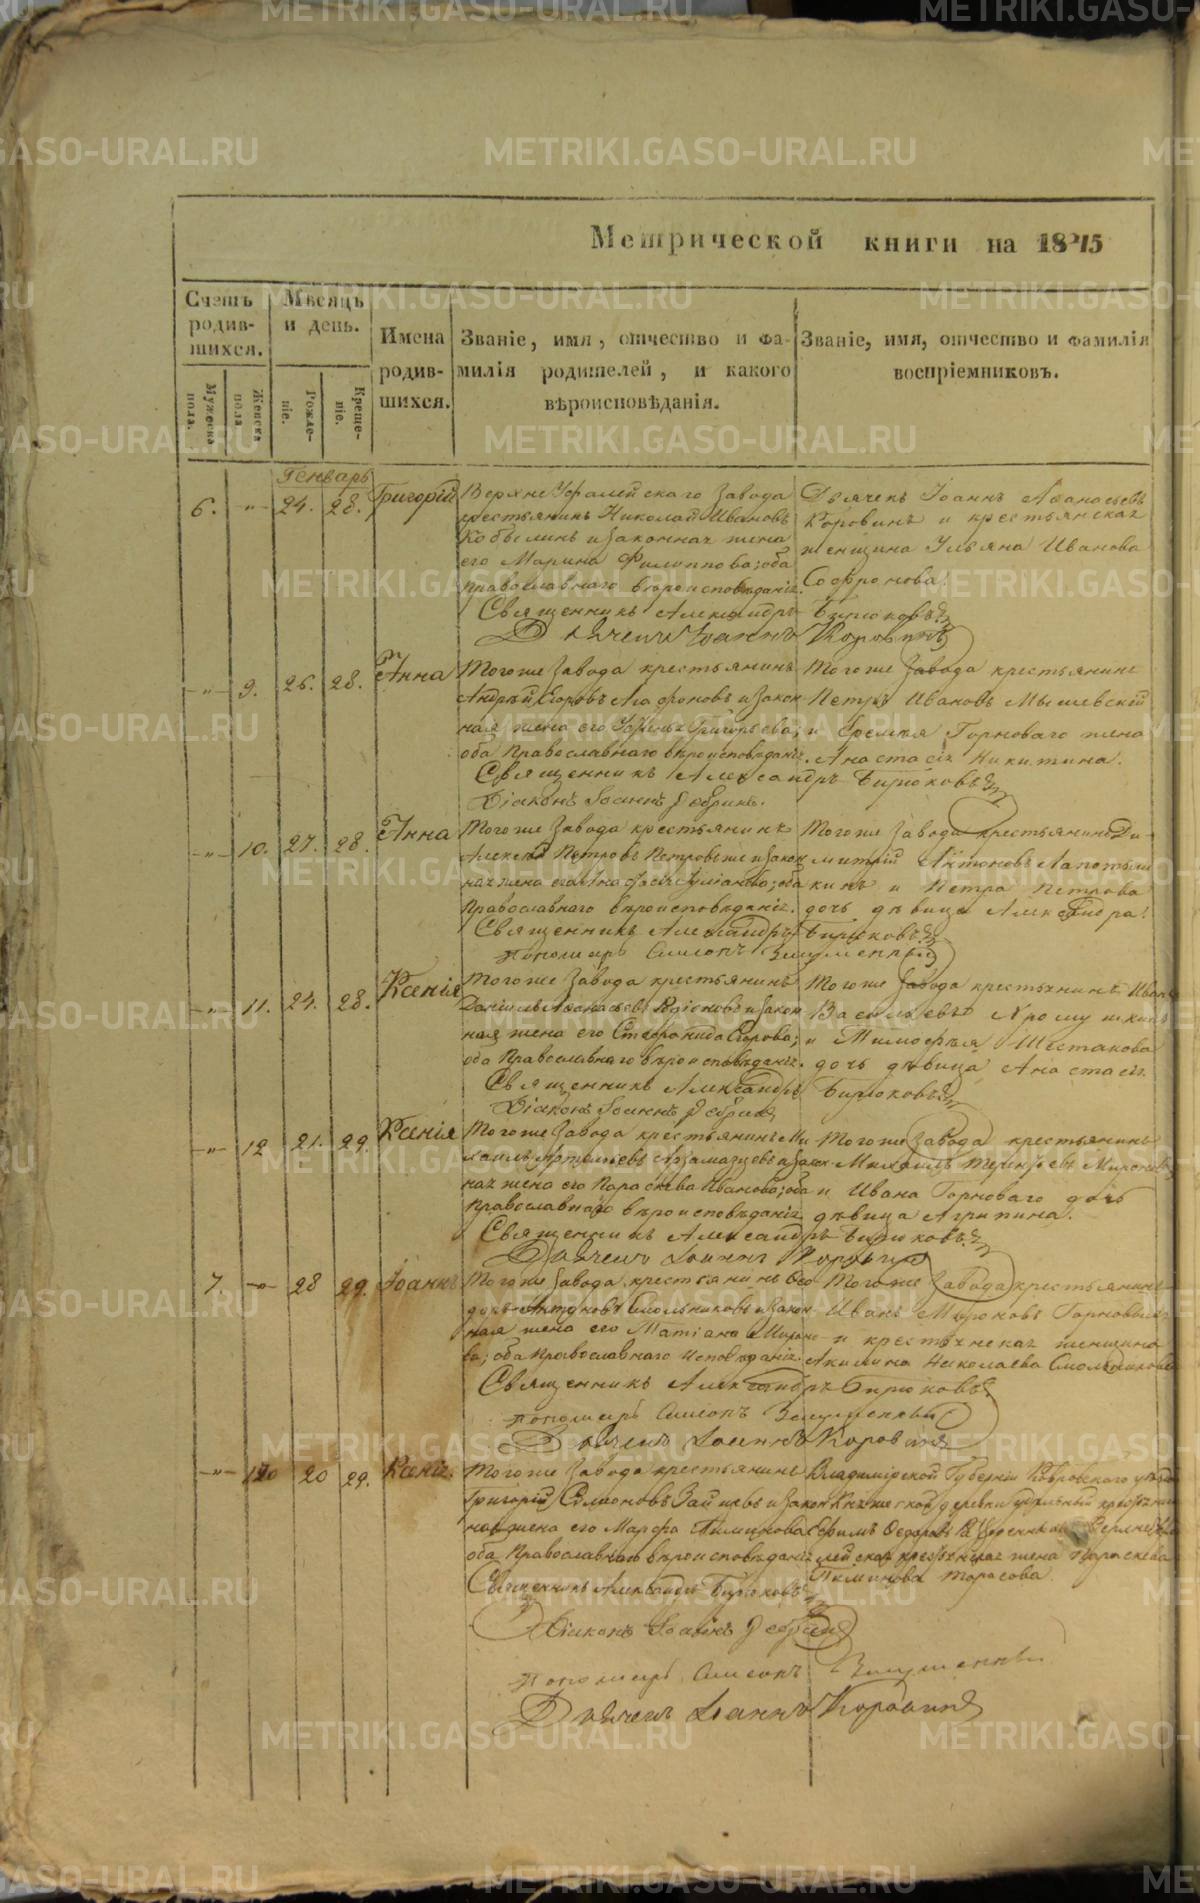 METRIKI.GASO-URAL.RU
Метрической книги на 1845
Счетъ родив-шихся.
Мужеска пола.
Женска пола
Мѣсяцъ и день.
Рожде-ніе.
Креще-ніе.
Имена родив-шихся.
Званіе, имя, отчество и фа-
милія родителей, и какого
вѣроисповѣданія.
Званіе, имя, отчество и фамилія
воспріемниковъ.
Генварь
6. -„- 24. 28. Григорій
Верхне Уфалейскаго Завода
крестьянинъ Николай Ивановъ
Кобылинъ и законная жена
его Марина Филиппова; оба
православнаго вѣроисповѣданія.
Дьячекъ Іоаннъ Аѳанасьевъ
Коровинъ и крестьянская
женщина Ульяна Иванова
Софронова.
Священникъ Александръ Бирюковъ
Дьячекъ Іоаннъ Коровинъ
-„- 9. 26. 28. Анна
Тогоже Завода крестьянинъ
Андрей Егоровъ Агафоновъ и закон-
ная жена его Григорьева;
оба Православнаго вѣроисповѣданія.
Тогоже Завода крестьянинъ
Петръ Ивановъ Мышевскій
и Еремея Горноваго жена
Анастасія Никитина.
Священникъ Александръ Бирюковъ
Діаконъ Іоаннъ
-„- 10. 27. 28. Анна
Тогоже Завода крестьянинъ
Алексѣй Петровъ и закон
ная жена его оба
Православнаго вѣроисповѣданія.
Тогоже Завода крестьянинъ Ди-
митрій Антоновъ Лапотыш
кинъ и Петра Петрова
дочь дѣвица Александра.
Священникъ Александръ Бирюковъ
пономарь Симеонъ
-„- 11. 24. 28. Ксенія
Тогоже Завода крестьянинъ
Даніилъ Аѳанасьевъ Родіоновъ и закон
ная жена его Стефанида Егорова;
оба Православнаго вѣроисповѣданія.
Тогоже Завода крестьянинъ Иванъ
Васильевъ Хромушкинъ
и Тимофея Шестакова
дочь дѣвица Анастасія.
Священникъ Александръ Бирюковъ
Діаконъ Іоаннъ
-„- 12 21. 29. Ксенія
Тогоже Завода крестьянинъ Ми
хаилъ Артемьевъ Арзамазцевъ и закон-
ная жена его Параскева Иванова; оба
Православнаго вѣроисповѣданія
Тогоже Завода крестьянинъ
Михаилъ Терентьевъ
и Ивана Горноваго дочь
дѣвица Агрипина.
Священникъ Александръ Бирюковъ
Дьячекъ Іоаннъ Коровинъ
7. -„- 28 29. Іоаннъ
Тогоже Завода крестьянинъ Ѳео
доръ Антоновъ Смольниковъ и закон-
ная жена его Татіана Мироно
ва; оба Православнаго исповѣданія.
Тогоже Завода крестьянинъ
Иванъ Мироновъ Горновыхъ
и крестьянская женщина
Акилина Николаева Смольникова
Священникъ Александръ Бирюковъ
пономарь Симеонъ
Дьячекъ Іоаннъ Коровинъ
-„- 20 29. Ксенія.
Тогоже Завода крестьянинъ
Григорій Симеоновъ Зайцевъ и закон
ная жена его Марфа
оба Православнаго вѣроисповѣданія
Владимірской Губерніи Ковровскаго уѣзда
деревни удѣльный крестьянинъ
Ефимъ Ѳедоровъ
крестьянская жена Параскева
Тарасова.
Священникъ Александръ Бирюковъ
Діаконъ Іоаннъ
пономарь Симеонъ
Дьячекъ Іоаннъ Коровинъ